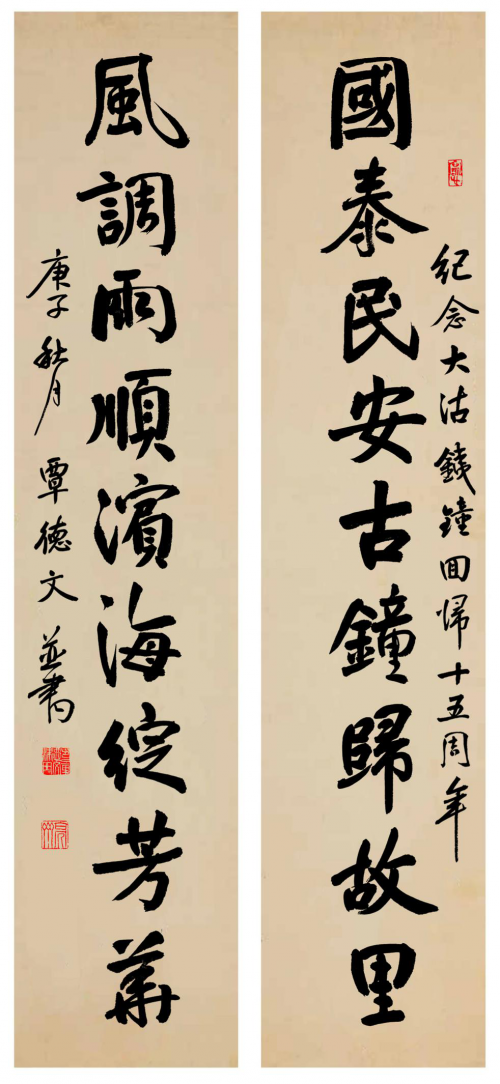 紀念大沽鐵鐘囬帰十五周年
國泰民安古鐘歸故里
風調雨順濱海綻芳華
庚子秋月 覃德文並書